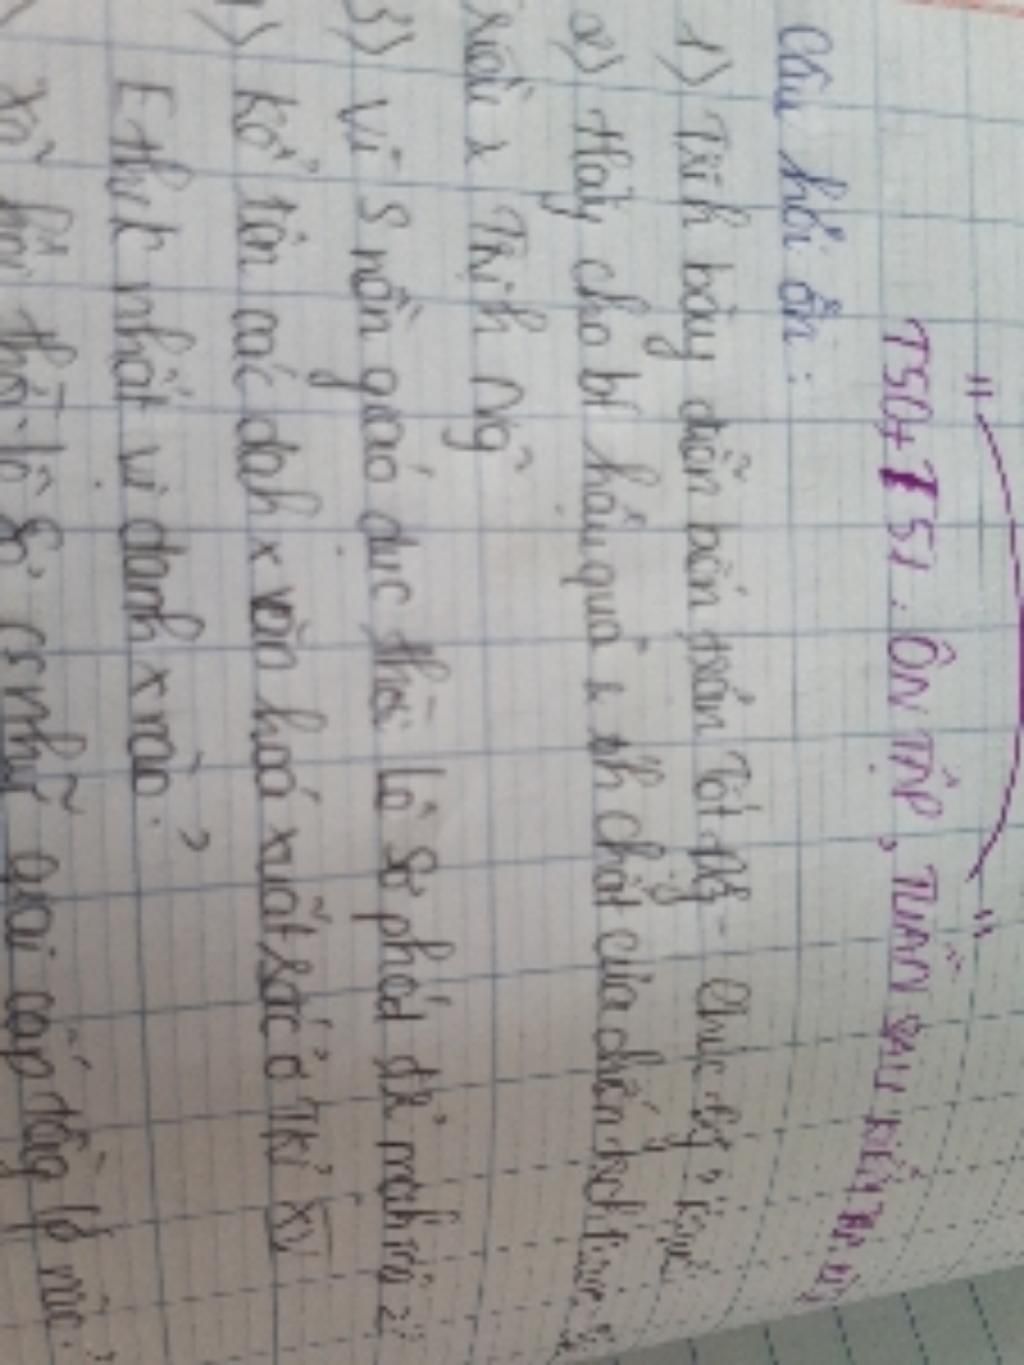 TSQ+ 1 51: ÔN TẬP, TUẦN SAU KIỂM TRA
Câu hỏi ôn:
1) Trình bày diễn biến trận Tốt Động - Chúc Động?
2) Hãy cho bt hậu quả & th chất của chiến tranh
Triều & Trịnh Ng~
3) Vì S nền giáo dục thời Lê Sơ phát đtr mạnh mẽ?
Kể tên các danh x văn hoá xuất sắc ở TKỉ XV
E thích nhất vị danh x nào?
Xã hội thời Lê Sơ có nhữ~ giai cấp tầng lớp nào?